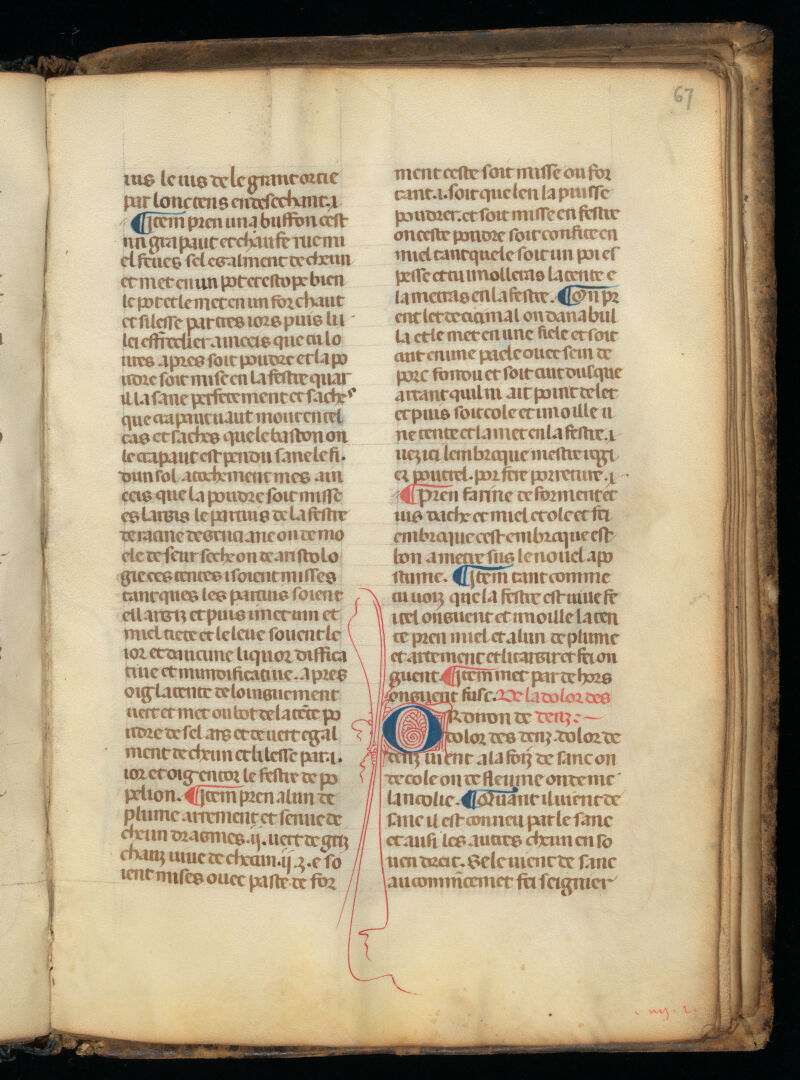 67
ius le ius de le grant ortie
par lonc tens en desechant .i.
¶ Item pren un q buffon cest
un grapaut et chaufe rue mi
el feues sel egalment de cheun
et met en un pot et estope bien
le pot et le met en un for chaut
et si lesse par tres iors puis lu
lei esfredier ainceis que tu lo
ures apres soit poudre et la po
udre soit mise en la festre quar
il la sane perfetement et saches
que crapaut uaut mout en tel
cas et saches que le baston ou
le crapaut est pendu sane le fi.
dun sol atochement mes ain
ceis que la poudre soit misse
eslargis le partuis de la festre
de racine de genciane ou de mo
ele de seur seche ou de aristolo
gie ces tentes i soient misses
tant que les partuis soient
ellargiz et puis i met uin et
miel tiete et le leue souent le
ior et daucune liquor diffica
tiue et mundificatiue. apres
oig la tente de loinguement
uert et met ou bot de la tente po
udre de sel ars et de uert egal
ment de cheun et li lesse par .i.
ior et oig entor le festre de po
pelion. ¶ Item pren alun de
plume arrement et senue de
cheun dragmes .ij. uert de griz
chauz uiue de cheun .ij. ʒ. e so
ient mises ouec paste de for
ment ceste soit misse ou for
tant .i. soit que len la puisse
poudrer. et soit misse en festre
ou ceste poudre soit confite en
miel tant que le soit un poi es
pesse et tu i molleras la tente e
la metras en la festre. ¶ Ou pr
ent let de titimal ou danabul
la et le met en une fiele et soit
cuit en une paele ouec sein de
porc fondu et soit cuit dusque
a tant quil ni ait point de let
et puis soit cole et i moille u
ne tente et la met en la festre. i
uez ici lembroque mestre rogi
er pouerel. por fere porreture. i
¶ Pren farine de forment et
ius dache et miel et ole et fei
embroque cest embroque est
bon a metre sus le nouel apo
stume. ¶ Item tant comme
tu uoiz que la festre est uiue fe
itel onguent et i moille la ten
te pren miel et alun de plume
et arrement et litargir et fei on
guent. ¶ Item met par dehors
onguent fusc. De la dolor des
Or deuon de denz
dolor des denz. dolor de
denz uient a la foiz de sanc ou
de cole ou de fleume ou de me
lancolie. ¶ Quant il uient de
sanc il est conneu par le sanc
et ausi les autres cheun en so
uen droit. Se le uient de sanc
au commencemet fei seignier